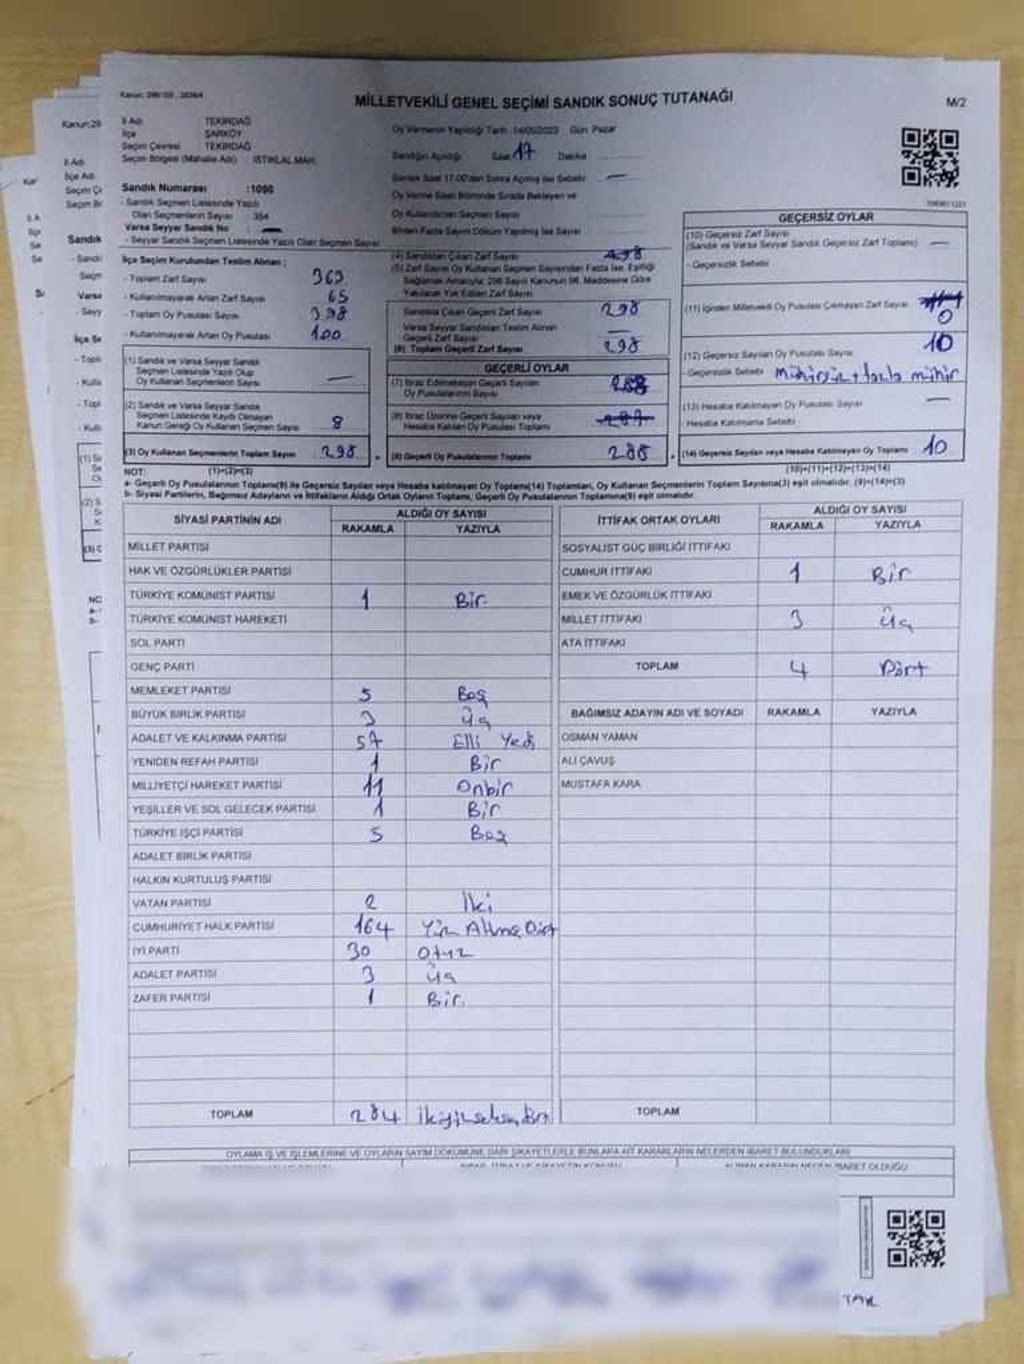 Kanun: 298/105, 2839/4
MİLLETVEKİLİ GENEL SEÇİMİ SANDIK SONUÇ TUTANAĞI
M/2
İl Adı TEKİRDAĞ
İlçe ŞARKÖY
Seçim Çevresi TEKİRDAĞ
Seçim Bölgesi (Mahalle Adı) : İSTİKLAL MAH.
Oy Vermenin Yapıldığı Tarih: 14/05/2023 Gün: Pazar
Sandığın Açıldığı Saat 17 Dakika
Sandık Saat 17:00'den Sonra Açılmış İse Sebebi —
Oy Verme Saati Bitiminde Sırada Bekleyen ve
Oy Kullandırılan Seçmen Sayısı
Birden Fazla Sayım Döküm Yapılmış İse Sayısı
Sandık Numarası :1066
- Sandık Seçmen Listesinde Yazılı
Olan Seçmenlerin Sayısı 354
Varsa Seyyar Sandık No : —
- Seyyar Sandık Seçmen Listesinde Yazılı Olan Seçmen Sayısı
İlçe Seçim Kurulundan Teslim Alınan ;
- Toplam Zarf Sayısı 363
- Kullanılmayarak Artan Zarf Sayısı 65
- Toplam Oy Pusulası Sayısı 398
- Kullanılmayarak Artan Oy Pusulası 100
(1) Sandık ve Varsa Seyyar Sandık
Seçmen Listesinde Yazılı Olup
Oy Kullanan Seçmenlerin Sayısı —
(2) Sandık ve Varsa Seyyar Sandık
Seçmen Listesinde Kayıtlı Olmayan
Kanun Gereği Oy Kullanan Seçmen Sayısı 8
(3) Oy Kullanan Seçmenlerin Toplam Sayısı 298
(4) Sandıktan Çıkan Zarf Sayısı
(5) Zarf Sayısı Oy Kullanan Seçmen Sayısından Fazla İse, Eşitliği
Sağlamak Amacıyla; 298 Sayılı Kanunun 98. Maddesine Göre
Yakılarak Yok Edilen Zarf Sayısı
Sandıkta Çıkan Geçerli Zarf Sayısı 298
Varsa Seyyar Sandıktan Teslim Alınan
Geçerli Zarf Sayısı —
(6) Toplam Geçerli Zarf Sayısı 298
GEÇERLİ OYLAR
(7) İtiraz Edilmeksizin Geçerli Sayılan
Oy Pusulalarının Sayısı 288
(8) İtiraz Üzerine Geçerli Sayılan veya
Hesaba Katılan Oy Pusulası Toplamı
(9) Geçerli Oy Pusulalarının Toplamı 288
GEÇERSİZ OYLAR
(10) Geçersiz Zarf Sayısı
(Sandık ve Varsa Seyyar Sandık Geçersiz Zarf Toplamı) —
- Geçersizlik Sebebi
(11) İçinden Milletvekili Oy Pusulası Çıkmayan Zarf Sayısı 0
(12) Geçersiz Sayılan Oy Pusulası Sayısı 10
- Geçersizlik Sebebi Mühürsüz + fazla mühür
(13) Hesaba Katılmayan Oy Pusulası Sayısı —
- Hesaba Katılmama Sebebi
(14) Geçersiz Sayılan veya Hesaba Katılmayan Oy Toplamı 10
NOT: (1)+(2)=(3) (10)+(11)+(12)+(13)=(14)
a- Geçerli Oy Pusulalarının Toplamı(9) ile Geçersiz Sayılan veya Hesaba katılmayan Oy Toplamı(14) Toplamları, Oy Kullanan Seçmenlerin Toplam Sayısına(3) eşit olmalıdır. (9)+(14)=(3)
b- Siyasi Partilerin, Bağımsız Adayların ve İttifakların Aldığı Ortak Oyların Toplamı, Geçerli Oy Pusulalarının Toplamına(9) eşit olmalıdır.
SİYASİ PARTİNİN ADI ALDIĞI OY SAYISI
RAKAMLA YAZIYLA
MİLLET PARTİSİ
HAK VE ÖZGÜRLÜKLER PARTİSİ
TÜRKİYE KOMÜNİST PARTİSİ 1 Bir
TÜRKİYE KOMÜNİST HAREKETİ
SOL PARTİ
GENÇ PARTİ
MEMLEKET PARTİSİ 5 Beş
BÜYÜK BİRLİK PARTİSİ 3 Üç
ADALET VE KALKINMA PARTİSİ 57 Elli Yedi
YENİDEN REFAH PARTİSİ 1 Bir
MİLLİYETÇİ HAREKET PARTİSİ 11 Onbir
YEŞİLLER VE SOL GELECEK PARTİSİ 1 Bir
TÜRKİYE İŞÇİ PARTİSİ 5 Beş
ADALET BİRLİK PARTİSİ
HALKIN KURTULUŞ PARTİSİ
VATAN PARTİSİ 2 İki
CUMHURİYET HALK PARTİSİ 164 Yüz Altmış Dört
İYİ PARTİ 30 Otuz
ADALET PARTİSİ 3 Üç
ZAFER PARTİSİ 1 Bir
TOPLAM 284 İkiyüzseksendört
İTTİFAK ORTAK OYLARI ALDIĞI OY SAYISI
RAKAMLA YAZIYLA
SOSYALİST GÜÇ BİRLİĞİ İTTİFAKI
CUMHUR İTTİFAKI 1 Bir
EMEK VE ÖZGÜRLÜK İTTİFAKI
MİLLET İTTİFAKI 3 Üç
ATA İTTİFAKI
TOPLAM 4 Dört
BAĞIMSIZ ADAYIN ADI VE SOYADI RAKAMLA YAZIYLA
OSMAN YAMAN
ALİ ÇAVUŞ
MUSTAFA KARA
TOPLAM
OYLAMA İŞ VE İŞLEMLERİNE VE OYLARIN SAYIM DÖKÜMÜNE DAİR ŞİKAYETLERLE BUNLARA AİT KARARLARIN NELERDEN İBARET BULUNDUKLARI